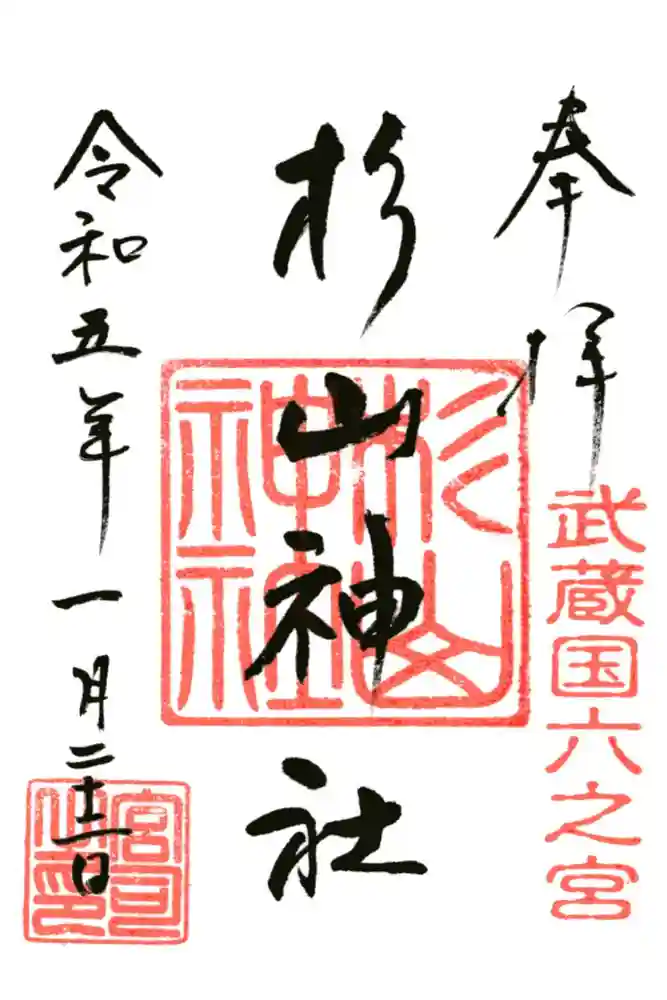 奉拝
武蔵国六之宮
杉山神社
杉山
神社
令和五年一月二十二日
宮司
之印